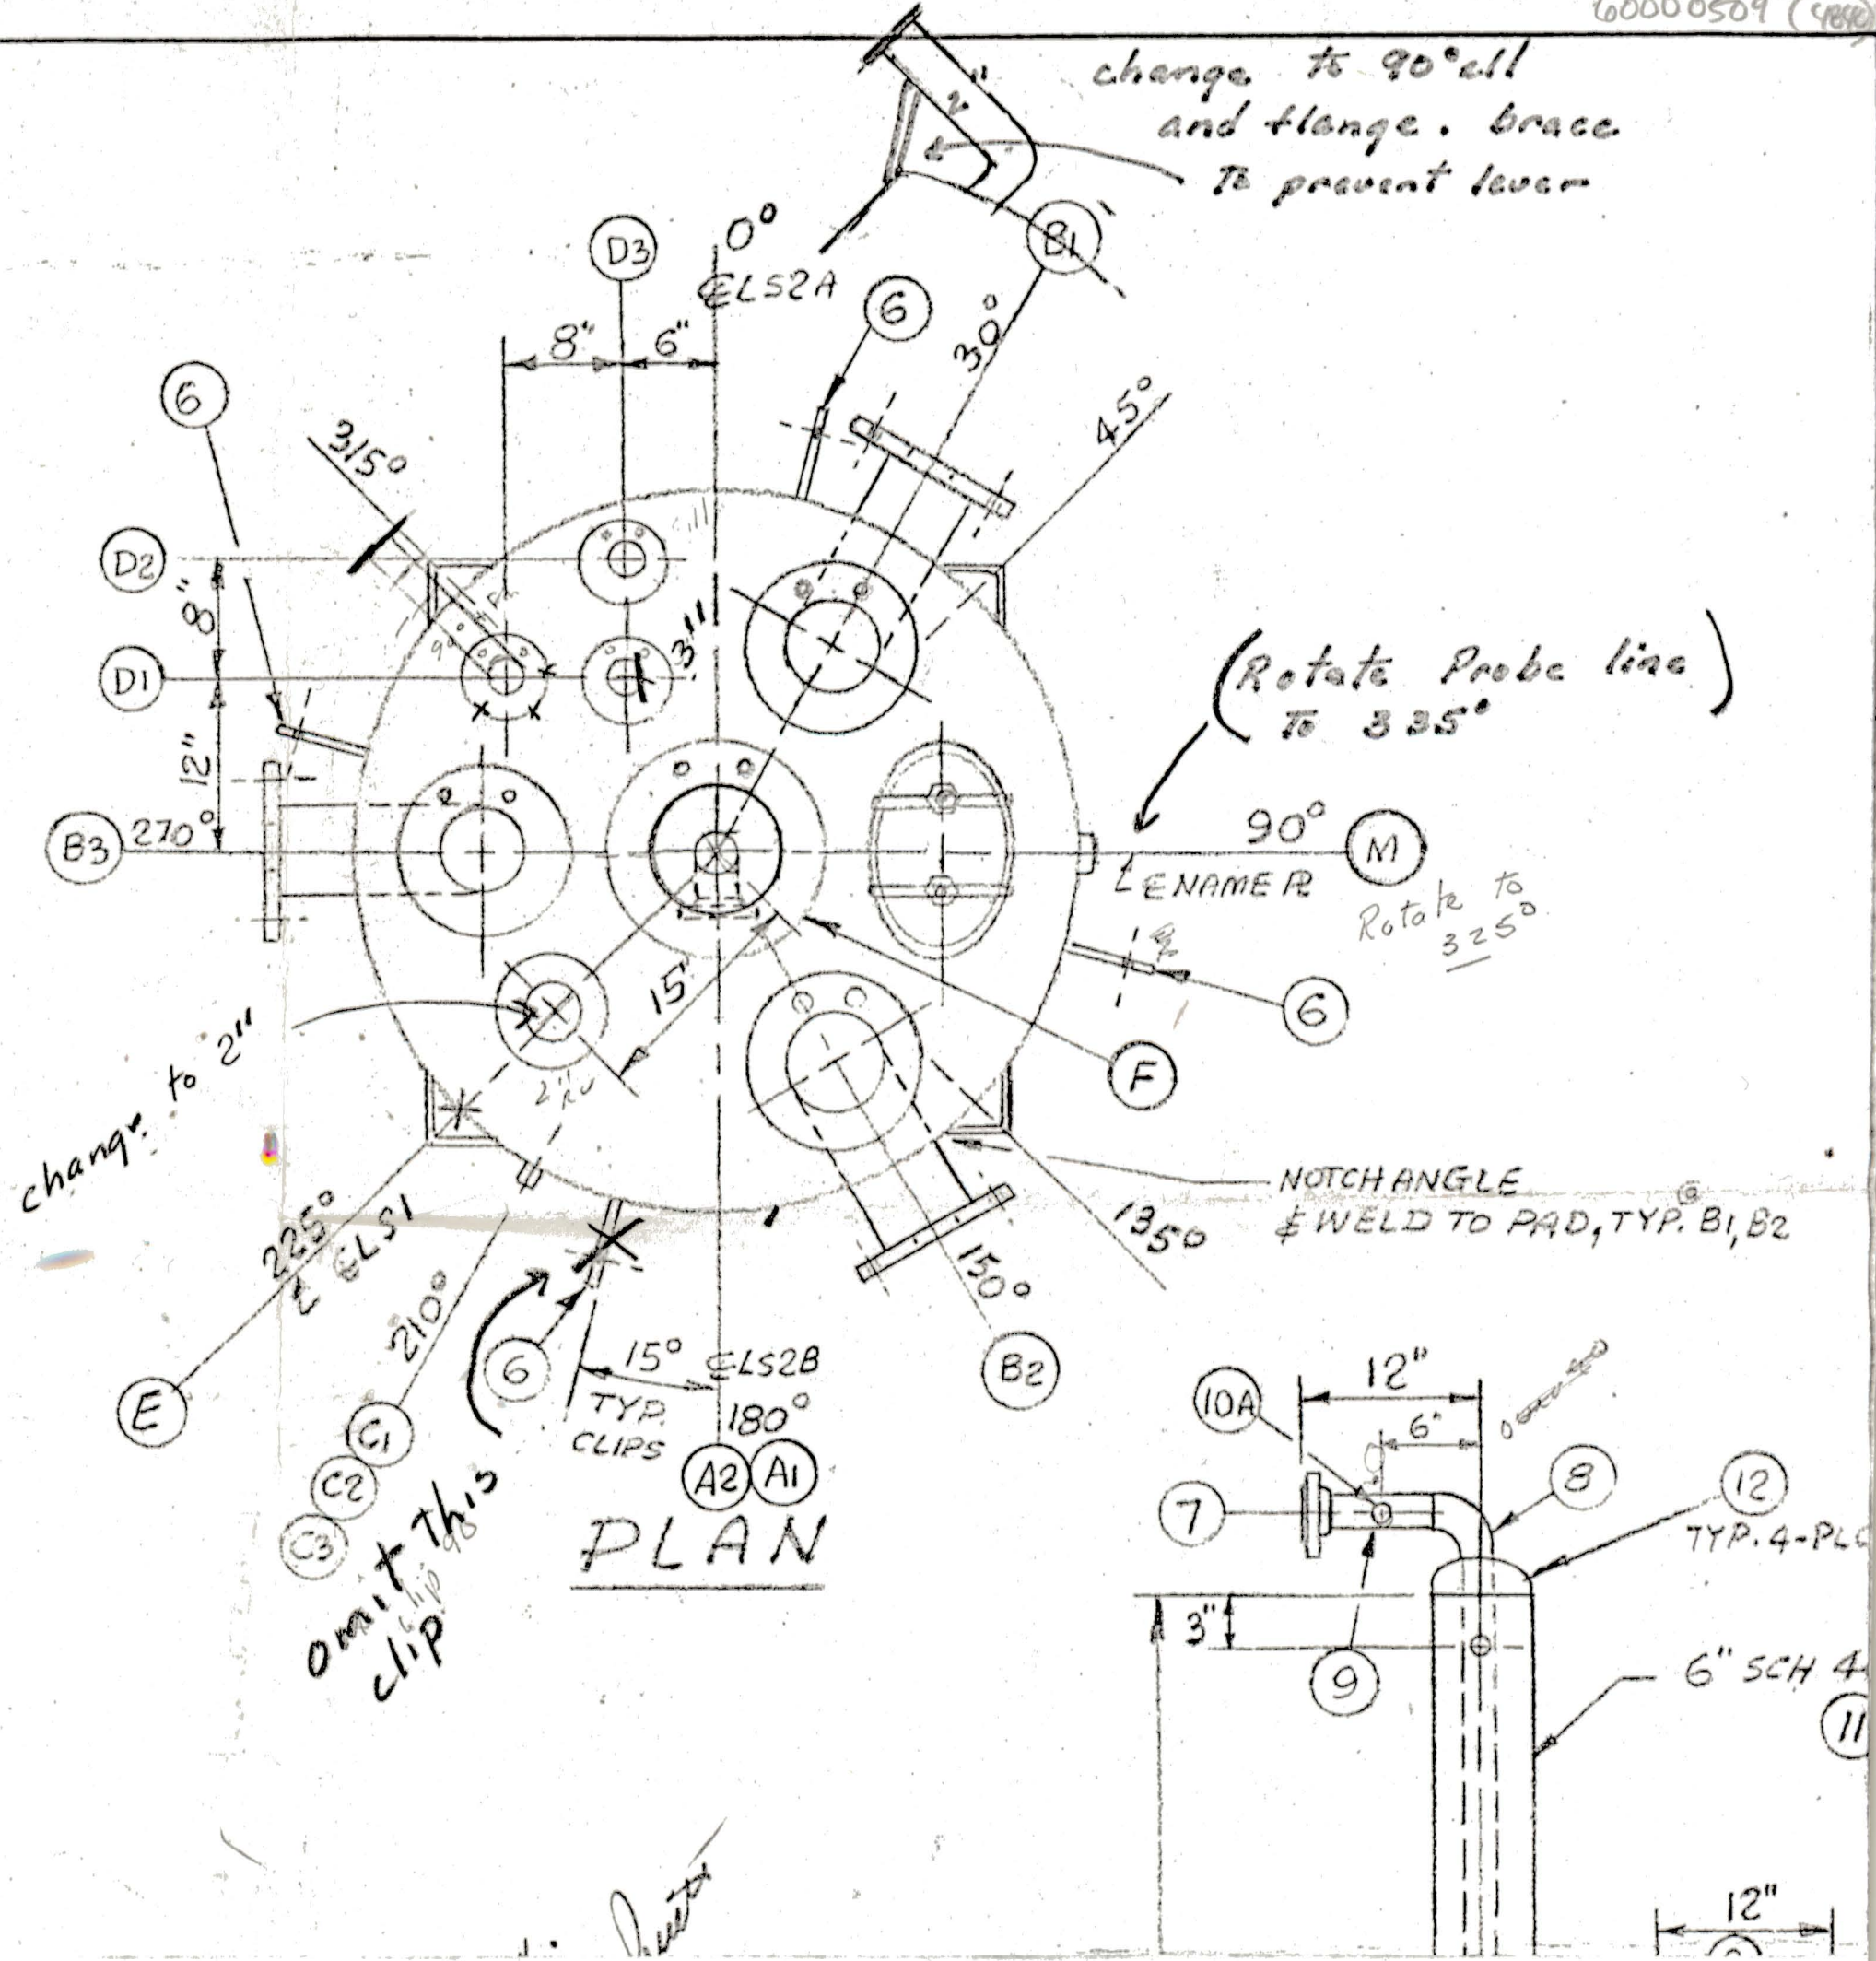 60000509
change to 90° ell
and flange. brace
to prevent lever
2"
B1
D3
0°
℄LS2A
6
30°
8"
6"
45°
6
315°
D2
8"
D1
3"
12"
(Rotate Probe line)
To 335°
B3
270°
90°
M
℄NAME ℞
Rotate to
325°
15"
6
change to 2"
2"
F
NOTCH ANGLE
& WELD TO PAD, TYP. B1, B2
225°
℄ LS1
135°
150°
210°
6
15°
℄LS2B
TYP.
CLIPS
180°
B2
E
C1
C2
C3
A2
A1
omit this
clip
PLAN
12"
10A
6"
7
8
12
TYP. 4-PLC
3"
9
6" SCH 4
11
12"